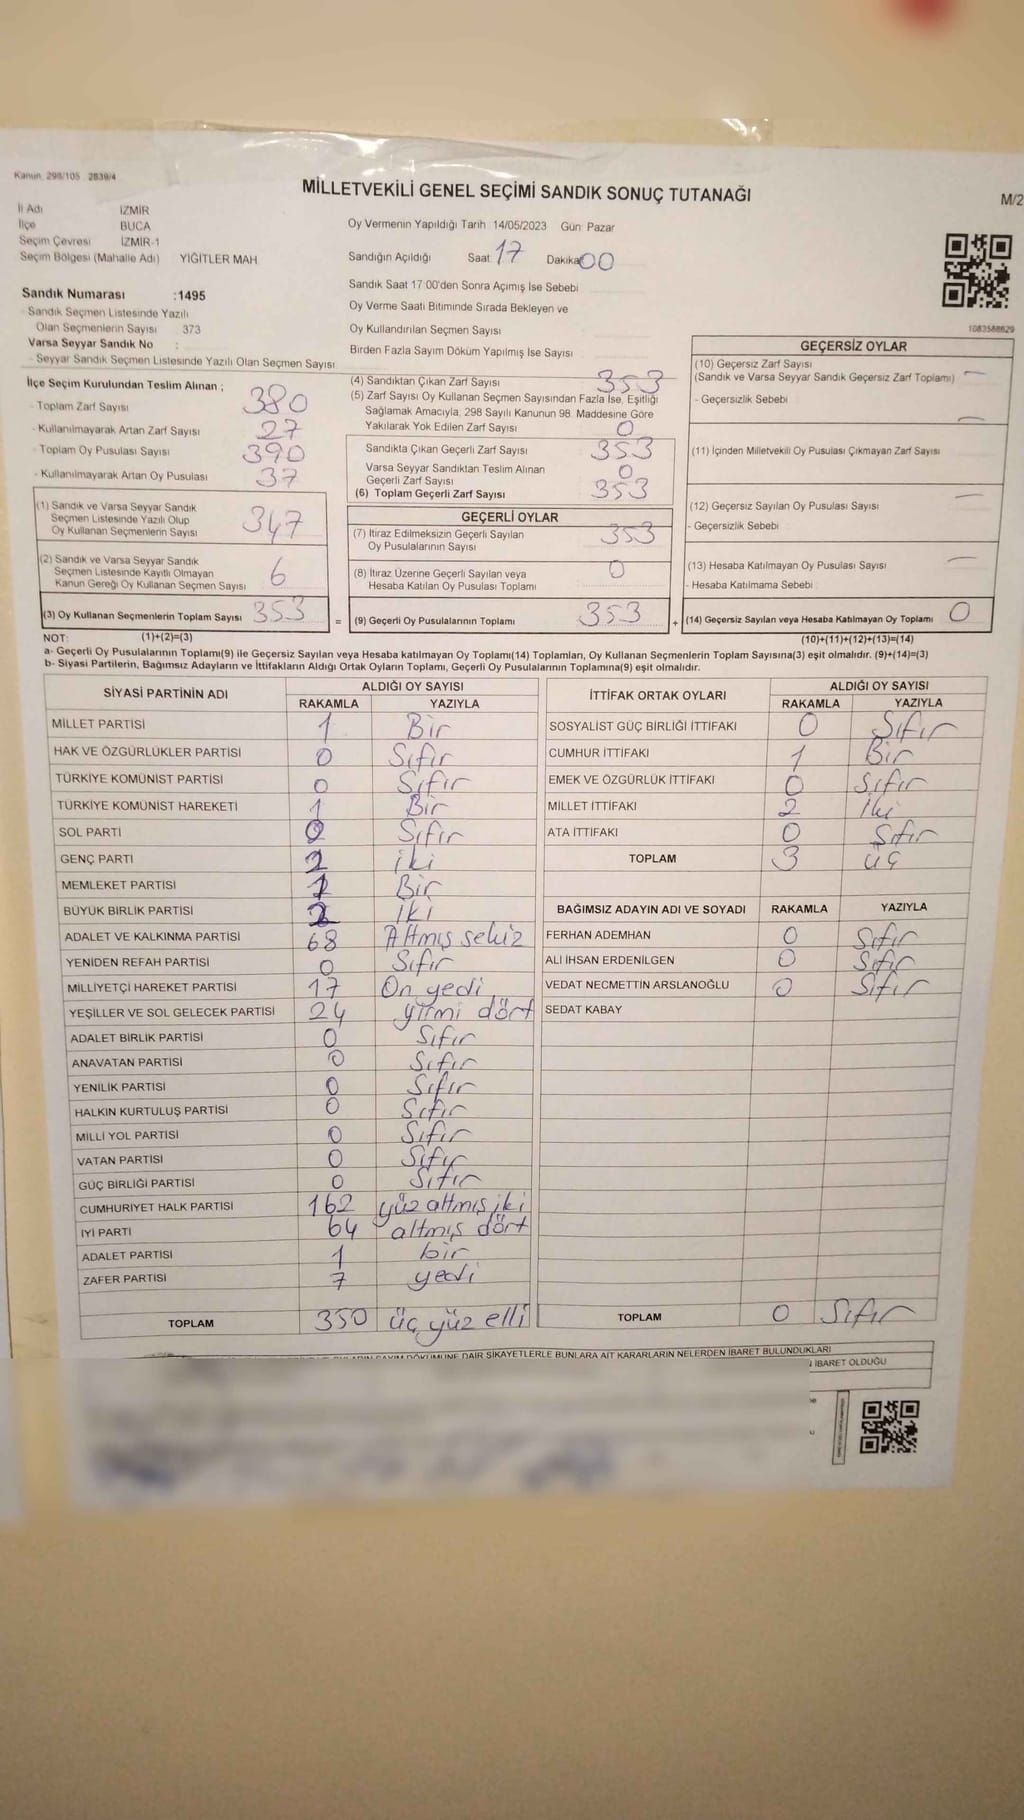 Kanun 298/105 2839/4
MİLLETVEKİLİ GENEL SEÇİMİ SANDIK SONUÇ TUTANAĞI
M/2
İl Adı İZMİR
İlçe BUCA
Seçim Çevresi İZMİR-1
Seçim Bölgesi (Mahalle Adı) YİĞİTLER MAH
Sandık Numarası :1495
Sandık Seçmen Listesinde Yazılı
Olan Seçmenlerin Sayısı 373
Varsa Seyyar Sandık No :
- Seyyar Sandık Seçmen Listesinde Yazılı Olan Seçmen Sayısı
Oy Vermenin Yapıldığı Tarih 14/05/2023 Gün Pazar
Sandığın Açıldığı Saat 17 Dakika 00
Sandık Saat 17 00'den Sonra Açımış İse Sebebi
Oy Verme Saati Bitiminde Sırada Bekleyen ve
Oy Kullandırılan Seçmen Sayısı
Birden Fazla Sayım Döküm Yapılmış İse Sayısı
1083588629
İlçe Seçim Kurulundan Teslim Alınan ;
- Toplam Zarf Sayısı 380
- Kullanılmayarak Artan Zarf Sayısı 27
- Toplam Oy Pusulası Sayısı 390
- Kullanılmayarak Artan Oy Pusulası 37
(1) Sandık ve Varsa Seyyar Sandık
Seçmen Listesinde Yazılı Olup
Oy Kullanan Seçmenlerin Sayısı 347
(2) Sandık ve Varsa Seyyar Sandık
Seçmen Listesinde Kayıtlı Olmayan
Kanun Gereği Oy Kullanan Seçmen Sayısı 6
(3) Oy Kullanan Seçmenlerin Toplam Sayısı 353 =
(4) Sandıktan Çıkan Zarf Sayısı 353
(5) Zarf Sayısı Oy Kullanan Seçmen Sayısından Fazla İse, Eşitliği
Sağlamak Amacıyla, 298 Sayılı Kanunun 98. Maddesine Göre
Yakılarak Yok Edilen Zarf Sayısı 0
Sandıkta Çıkan Geçerli Zarf Sayısı 353
Varsa Seyyar Sandıktan Teslim Alınan
Geçerli Zarf Sayısı 0
(6) Toplam Geçerli Zarf Sayısı 353
GEÇERLİ OYLAR
(7) İtiraz Edilmeksizin Geçerli Sayılan
Oy Pusulalarının Sayısı 353
(8) İtiraz Üzerine Geçerli Sayılan veya
Hesaba Katılan Oy Pusulası Toplamı 0
(9) Geçerli Oy Pusulalarının Toplamı 353 +
GEÇERSİZ OYLAR
(10) Geçersiz Zarf Sayısı
(Sandık ve Varsa Seyyar Sandık Geçersiz Zarf Toplamı) —
- Geçersizlik Sebebi
(11) İçinden Milletvekili Oy Pusulası Çıkmayan Zarf Sayısı —
(12) Geçersiz Sayılan Oy Pusulası Sayısı —
- Geçersizlik Sebebi
(13) Hesaba Katılmayan Oy Pusulası Sayısı —
- Hesaba Katılmama Sebebi
(14) Geçersiz Sayılan veya Hesaba Katılmayan Oy Toplamı 0
NOT: (1)+(2)=(3) (10)+(11)+(12)+(13)=(14)
a- Geçerli Oy Pusulalarının Toplamı(9) ile Geçersiz Sayılan veya Hesaba katılmayan Oy Toplamı(14) Toplamları, Oy Kullanan Seçmenlerin Toplam Sayısına(3) eşit olmalıdır. (9)+(14)=(3)
b- Siyasi Partilerin, Bağımsız Adayların ve İttifakların Aldığı Ortak Oyların Toplamı, Geçerli Oy Pusulalarının Toplamına(9) eşit olmalıdır.
SİYASİ PARTİNİN ADI ALDIĞI OY SAYISI
RAKAMLA YAZIYLA
MİLLET PARTİSİ 1 Bir
HAK VE ÖZGÜRLÜKLER PARTİSİ 0 Sıfır
TÜRKİYE KOMÜNİST PARTİSİ 0 Sıfır
TÜRKİYE KOMÜNİST HAREKETİ 1 Bir
SOL PARTİ 0 Sıfır
GENÇ PARTİ 2 iki
MEMLEKET PARTİSİ 1 Bir
BÜYÜK BİRLİK PARTİSİ 2 iki
ADALET VE KALKINMA PARTİSİ 68 Altmış sekiz
YENİDEN REFAH PARTİSİ 0 Sıfır
MİLLİYETÇİ HAREKET PARTİSİ 17 On yedi
YEŞİLLER VE SOL GELECEK PARTİSİ 24 yirmi dört
ADALET BİRLİK PARTİSİ 0 Sıfır
ANAVATAN PARTİSİ 0 Sıfır
YENİLİK PARTİSİ 0 Sıfır
HALKIN KURTULUŞ PARTİSİ 0 Sıfır
MİLLİ YOL PARTİSİ 0 Sıfır
VATAN PARTİSİ 0 Sıfır
GÜÇ BİRLİĞİ PARTİSİ 0 Sıfır
CUMHURİYET HALK PARTİSİ 162 yüz altmış iki
İYİ PARTİ 64 altmış dört
ADALET PARTİSİ 1 bir
ZAFER PARTİSİ 7 yedi
TOPLAM 350 üç yüz elli
İTTİFAK ORTAK OYLARI ALDIĞI OY SAYISI
RAKAMLA YAZIYLA
SOSYALİST GÜÇ BİRLİĞİ İTTİFAKI 0 Sıfır
CUMHUR İTTİFAKI 1 Bir
EMEK VE ÖZGÜRLÜK İTTİFAKI 0 Sıfır
MİLLET İTTİFAKI 2 iki
ATA İTTİFAKI 0 Sıfır
TOPLAM 3 üç
BAĞIMSIZ ADAYIN ADI VE SOYADI RAKAMLA YAZIYLA
FERHAN ADEMHAN 0 Sıfır
ALİ İHSAN ERDENİLGEN 0 Sıfır
VEDAT NECMETTİN ARSLANOĞLU 0 Sıfır
SEDAT KABAY
TOPLAM 0 Sıfır
DAİR ŞİKAYETLERLE BUNLARA AİT KARARLARIN NELERDEN İBARET BULUNDUKLARI
İBARET OLDUĞU